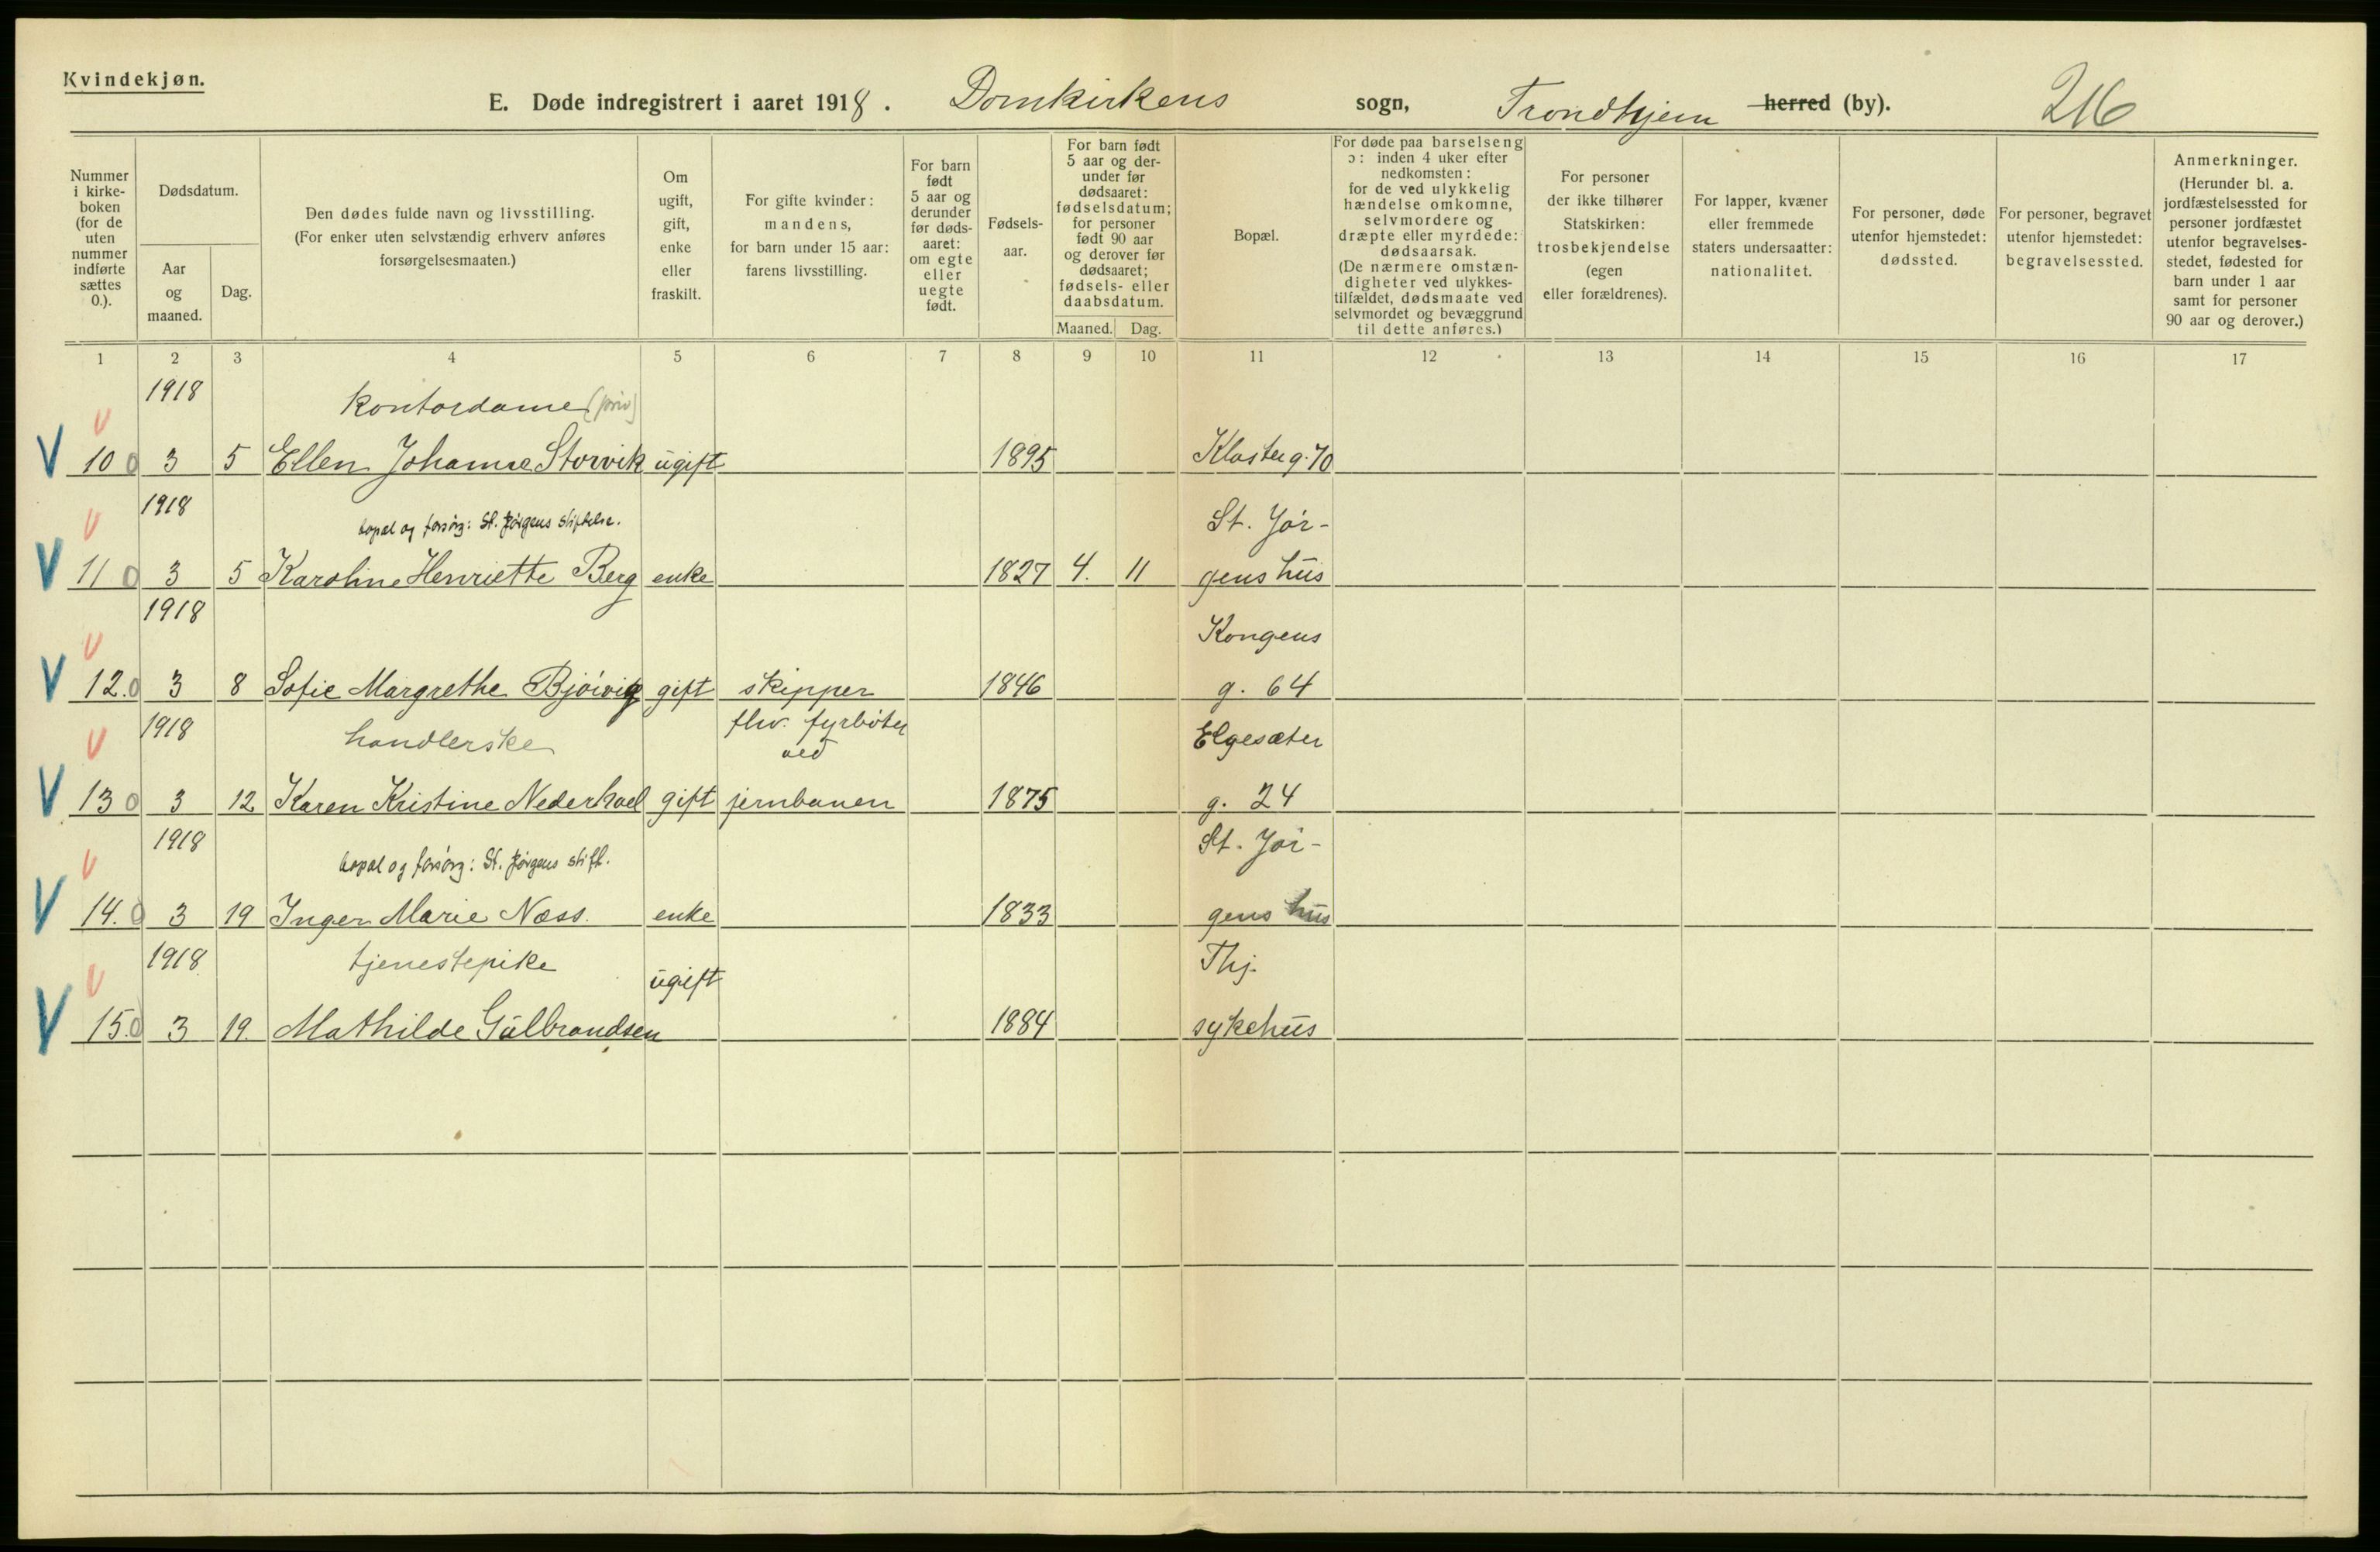 Kvindekjøn.
E. Døde indregistrert i aaret 1918. Domkirkens sogn, Trondhjem herred (by). 216
Nummer
i kirke-
boken
(for de
uten
nummer
indførte
sættes
0.).
Dødsdatum.
Aar
og
maaned.
Dag.
Den dødes fulde navn og livsstilling.
(For enker uten selvstændig erhverv anføres
forsørgelsesmaaten.)
Om
ugift,
gift,
enke
eller
fraskilt.
For gifte kvinder:
mandens,
for barn under 15 aar:
farens livsstilling.
For barn
født
5 aar og
derunder
før døds-
aaret:
om egte
eller
uegte
født.
Fødsels-
aar.
For barn født
5 aar og der-
under før
dødsaaret:
fødselsdatum;
for personer
født 90 aar
og derover før
dødsaaret;
fødsels- eller
daabsdatum.
Maaned. Dag.
Bopæl.
For døde paa barselseng
ɔ: inden 4 uker efter
nedkomsten:
for de ved ulykkelig
hændelse omkomne,
selvmordere og
dræpte eller myrdede:
dødsaarsak.
(De nærmere omstæn-
digheter ved ulykkes-
tilfældet, dødsmaate ved
selvmordet og bevæggrund
til dette anføres.)
For personer
der ikke tilhører
Statskirken:
trosbekjendelse
(egen
eller forældrenes).
For lapper, kvæner
eller fremmede
staters undersaatter:
nationalitet.
For personer, døde
utenfor hjemstedet:
dødssted.
For personer, begravet
utenfor hjemstedet:
begravelsessted.
Anmerkninger.
(Herunder bl. a.
jordfæstelsessted for
personer jordfæstet
utenfor begravelses-
stedet, fødested for
barn under 1 aar
samt for personer
90 aar og derover.)
1 2 3 4 5 6 7 8 9 10 11 12 13 14 15 16 17
1918 kontordame (priv)
V 10 0 3 5 Ellen Johanne Storvik ugift 1895 Klosterg. 70
1918 bopæl og forsørg: St. Jørgens stiftelse. St. Jør-
V 11 0 3 5 Karoline Henriette Berg enke 1827 4. 11 gens hus
1918 Kongens
V 12. 0 3 8 Sofie Margrethe Bjørvig gift skipper 1846 g. 64
1918 handlerske fhv. fyrbøter ved Elgesæter
V 13 0 3 12 Karen Kristine Nederhoel gift jernbanen 1875 g. 24
1918 bopæl og forsørg: St. Jørgens stift. St. Jør-
V 14. 0 3 19 Inger Marie Næss. enke 1833 gens hus
1918 tjenestepike ugift Thj.
V 15. 0 3 19. Mathilde Gulbrandsen 1884 sykehus